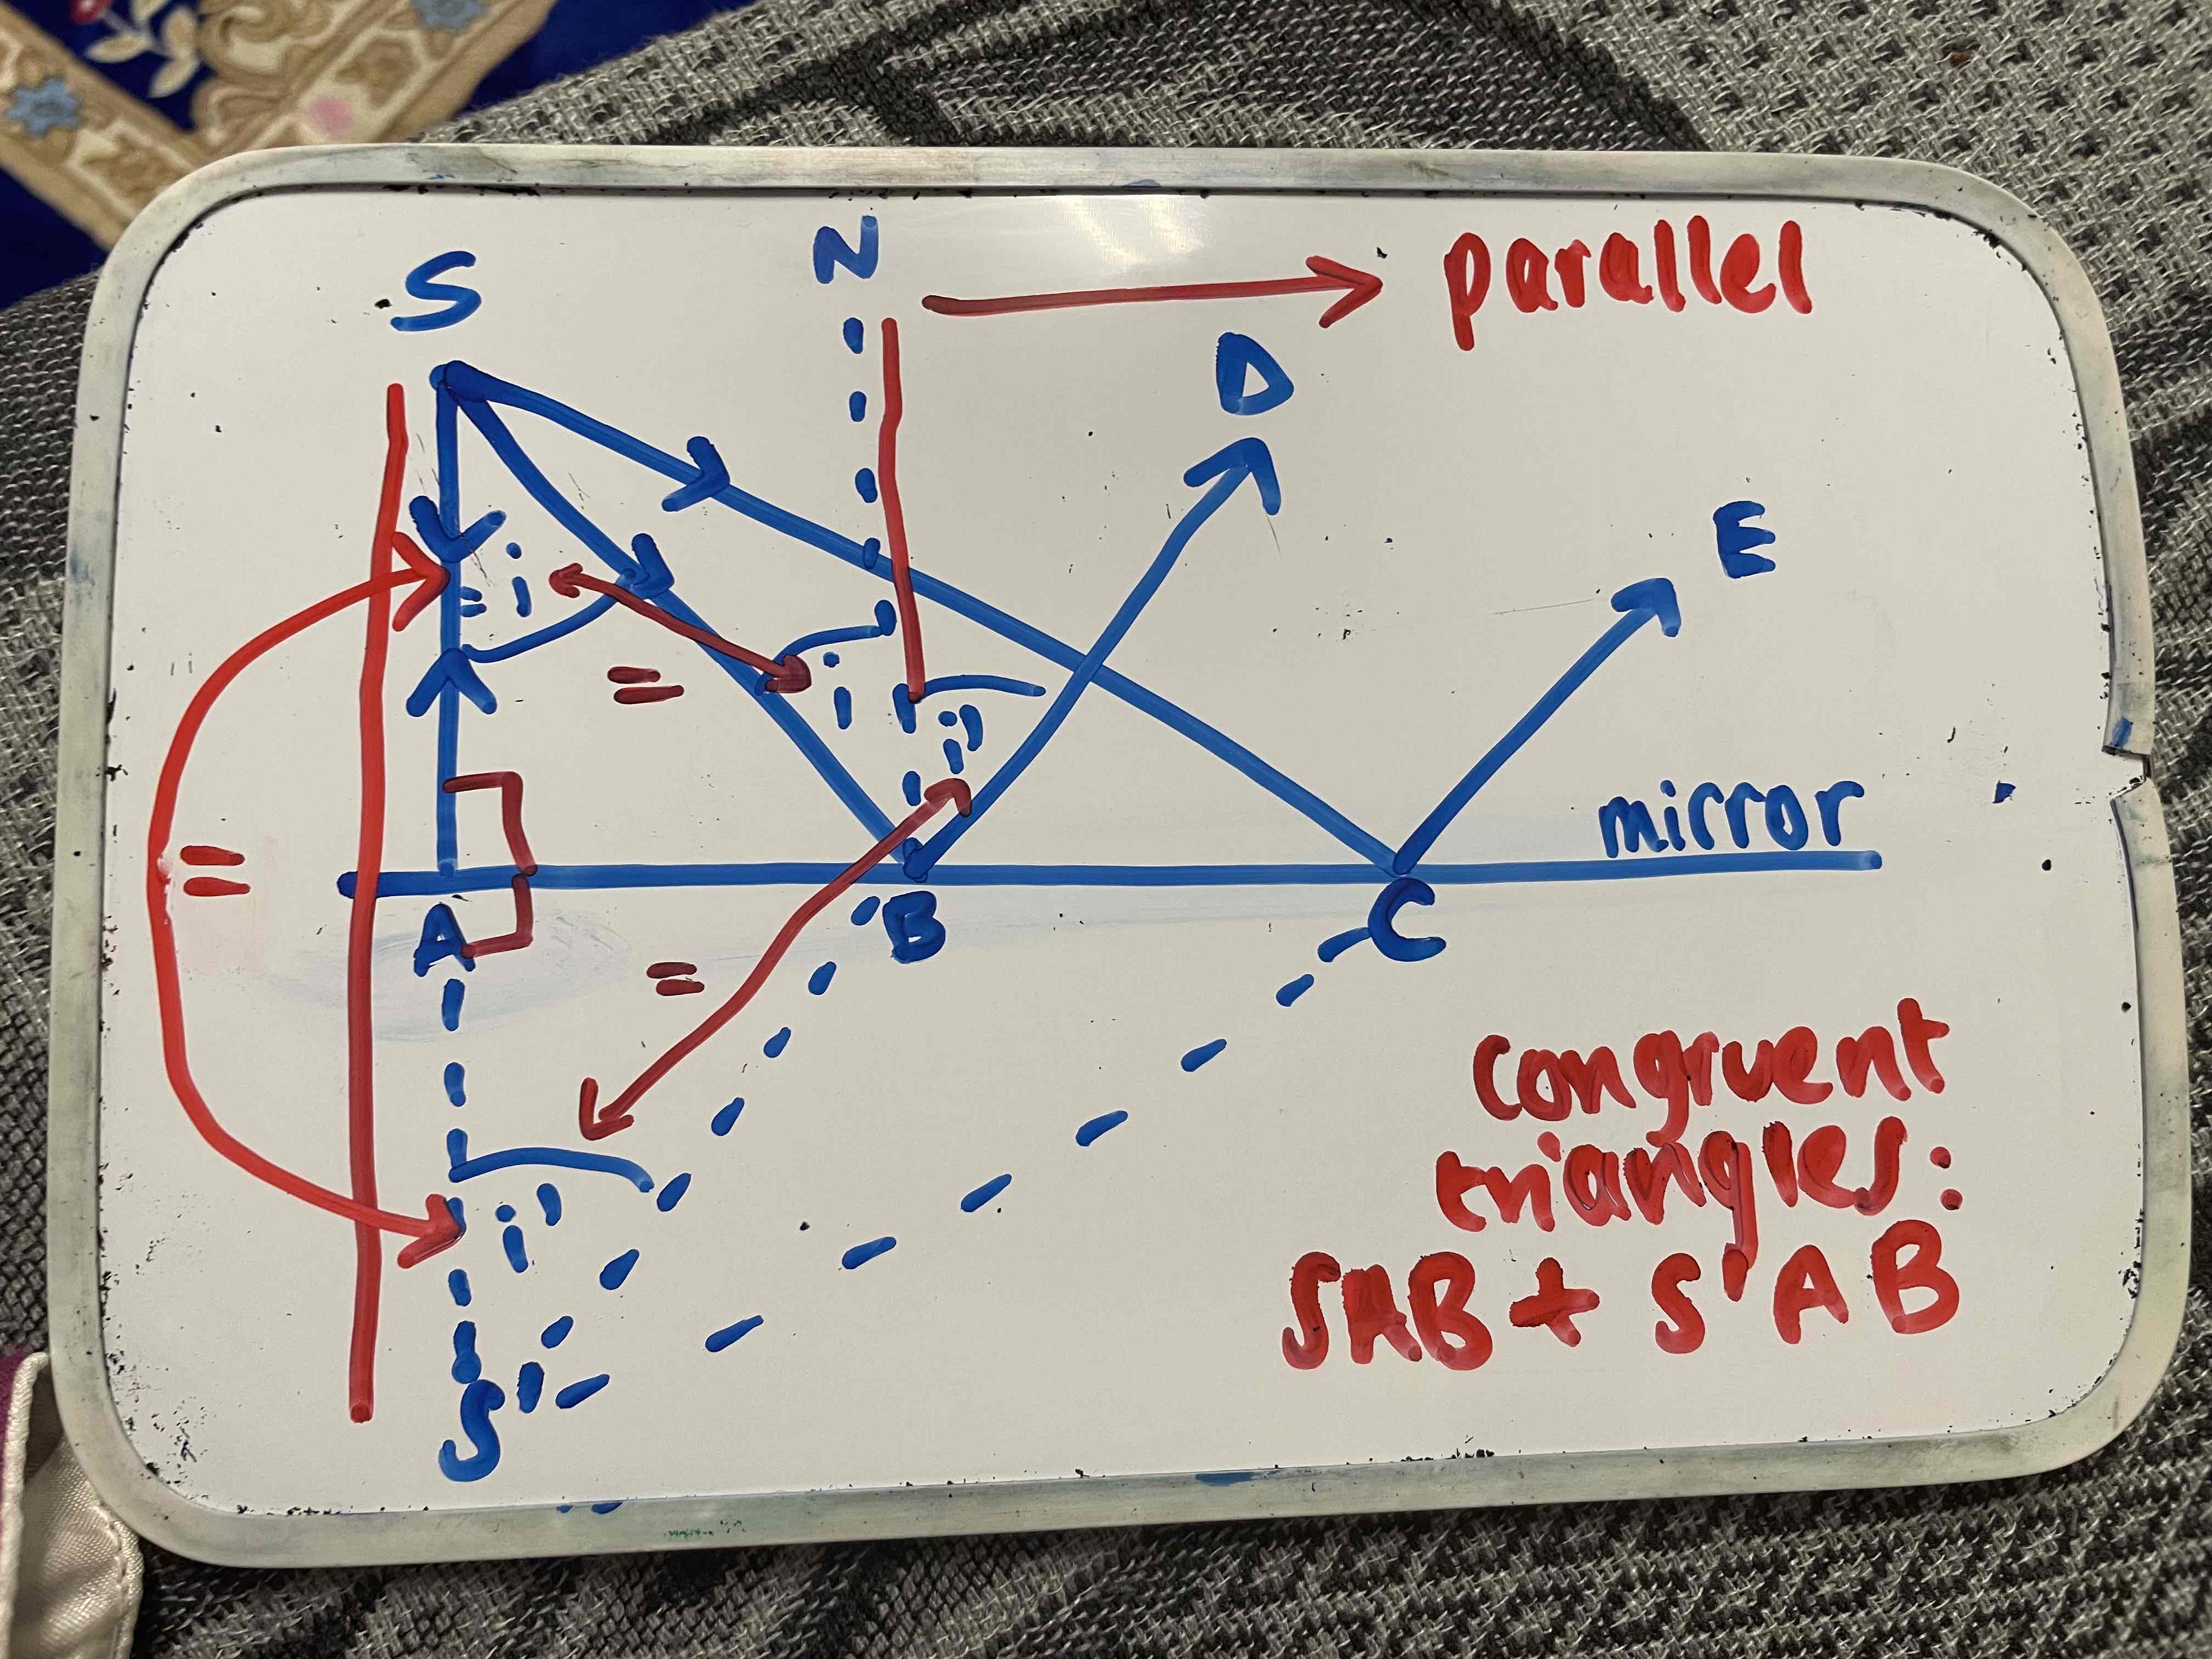 S
N
parallel
D
E
= i
=
i
i'
=
mirror
A
B
C
=
i'
S'
congruent
triangles:
SAB + S'AB